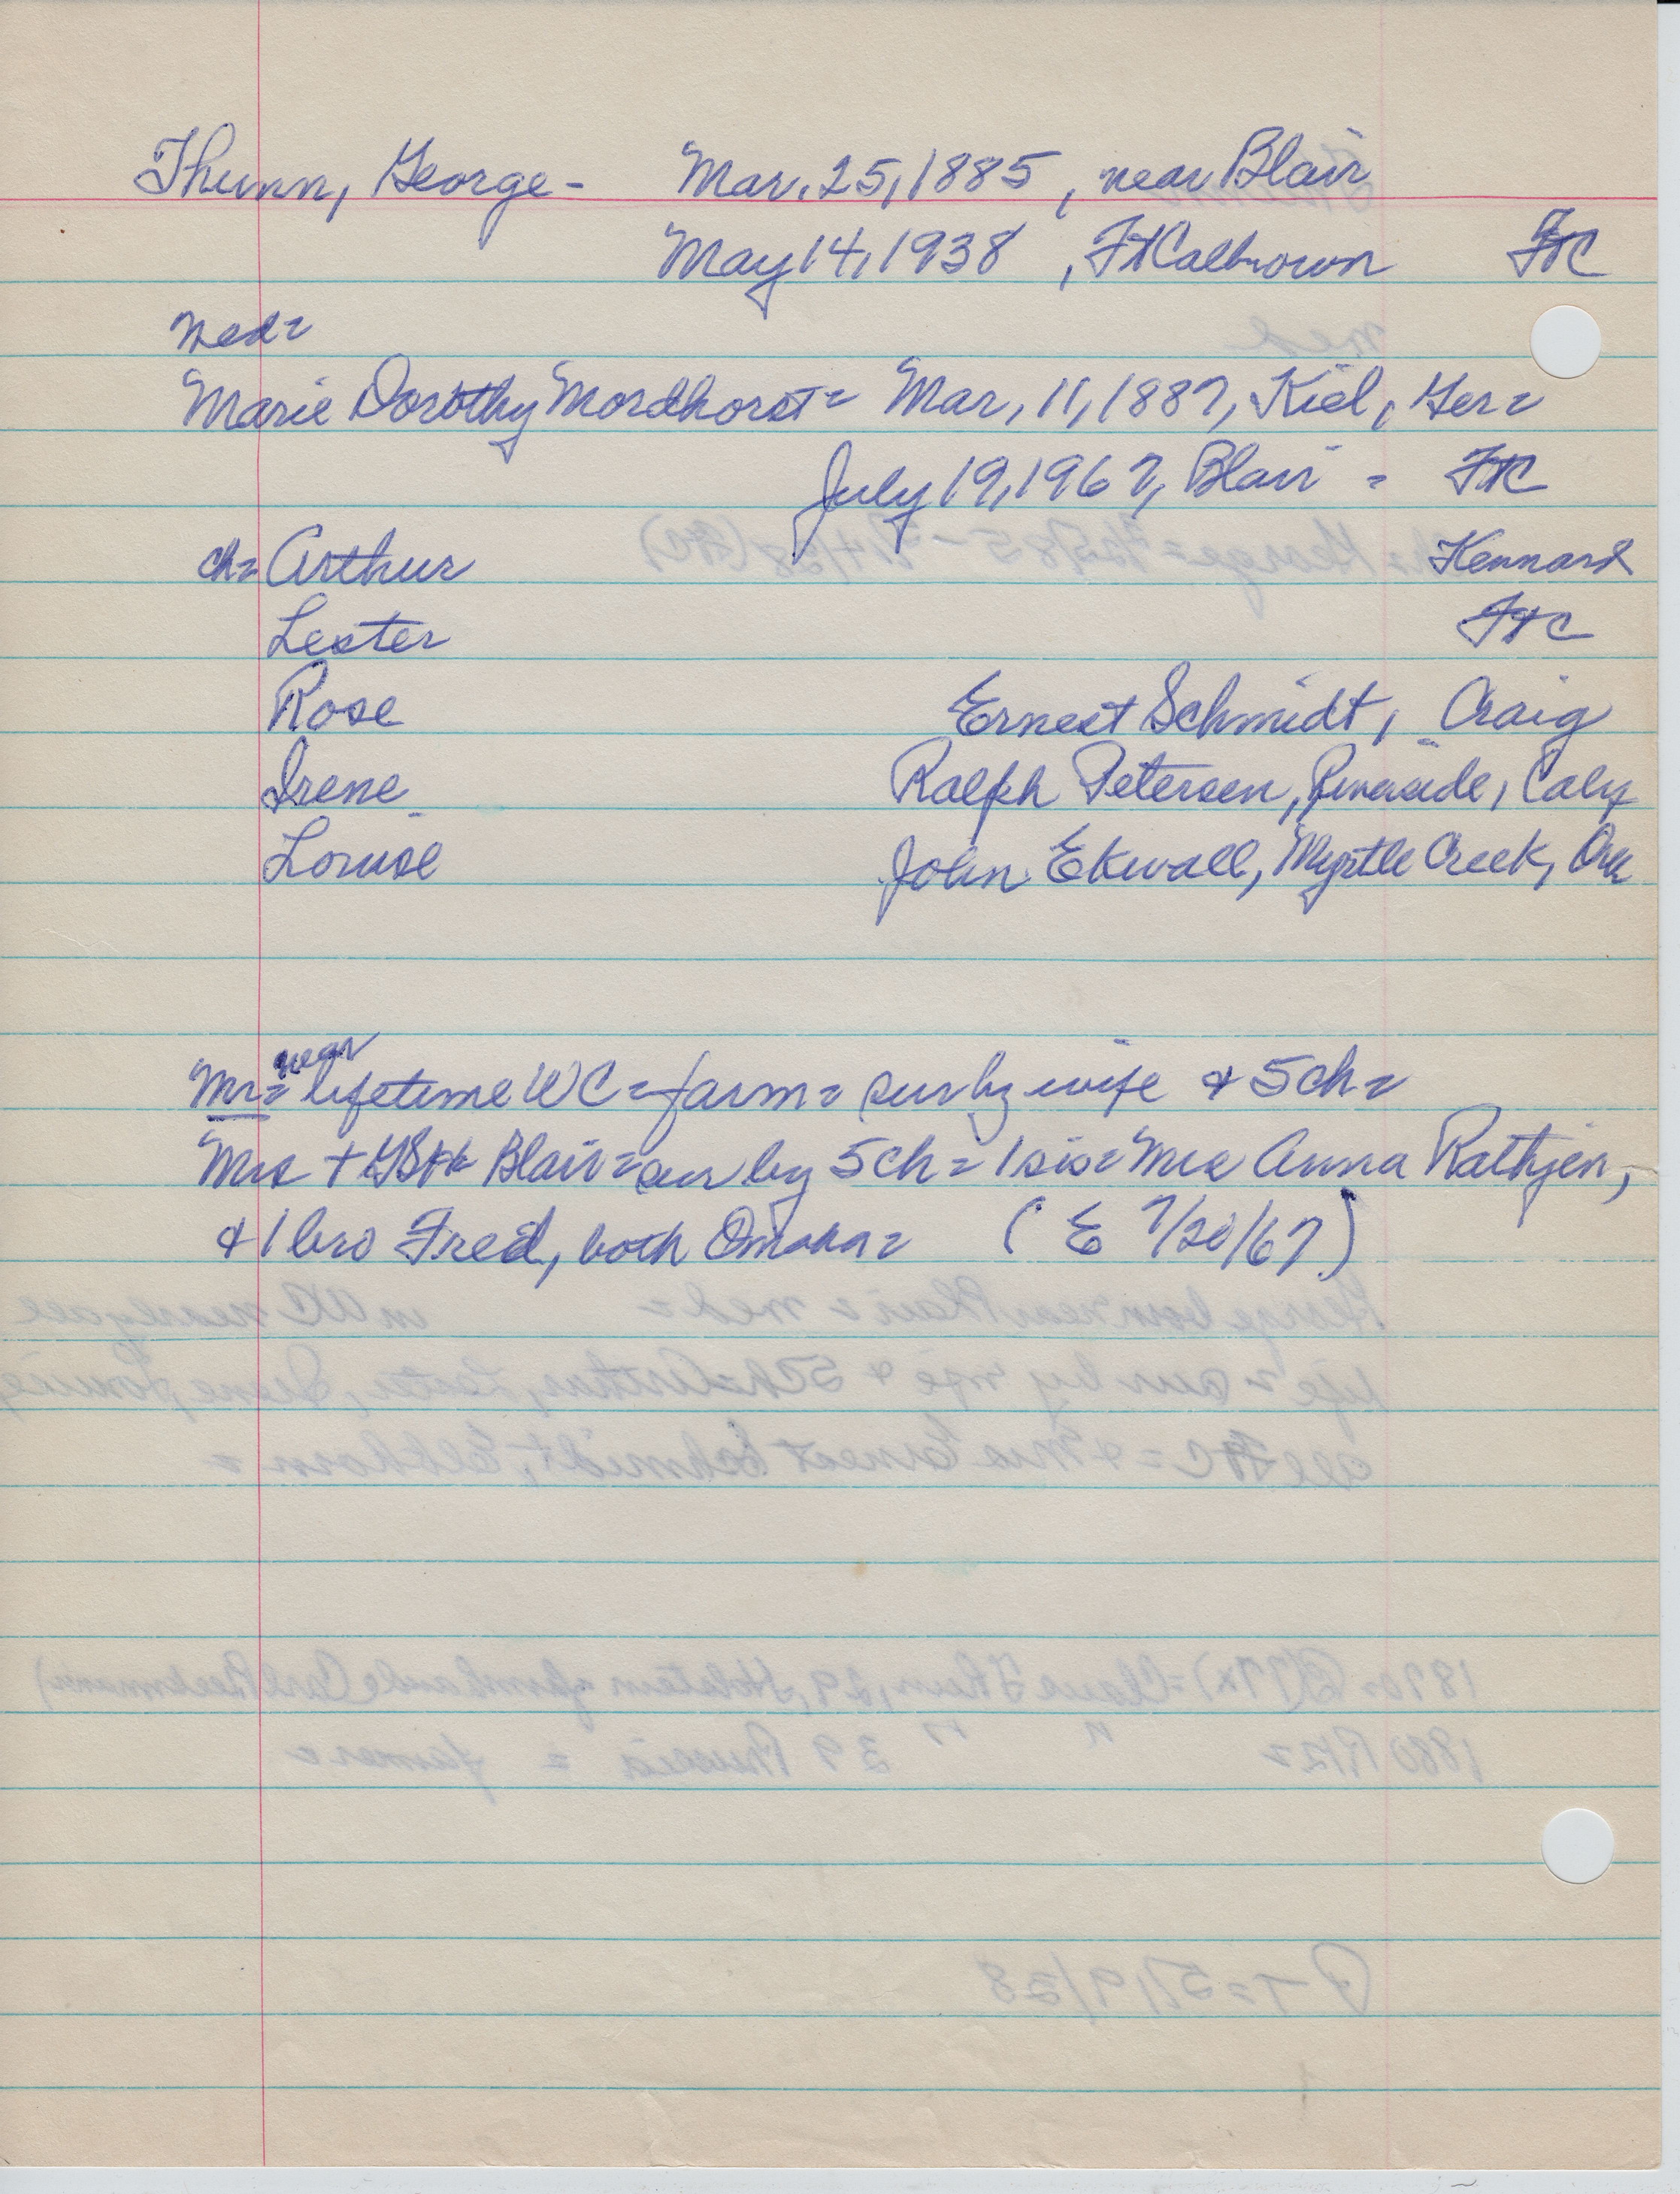 Thunn, George - Mar. 25, 1885, near Blair
May 14, 1938, Ft Calhown FtC
med=
Marie Dorothy Mordhorst = Mar, 11, 1887, Kiel, Ger=
July 19, 1967, Blair = FtC
ch= Arthur Kennard
Lester FtC
Rose Ernest Schmidt, Craig
Irene Ralph Petersen, Riverside, Calif
Louise John Ekwall, Myrtle Creek, Ore
near
Mr= lifetime WC = farm = sur by wife & 5 ch =
Mrs + Blair = sur by 5 ch = 1 sis = Mrs Anna Rathjen,
& 1 bro Fred, both Omaha = (E 7/20/67)